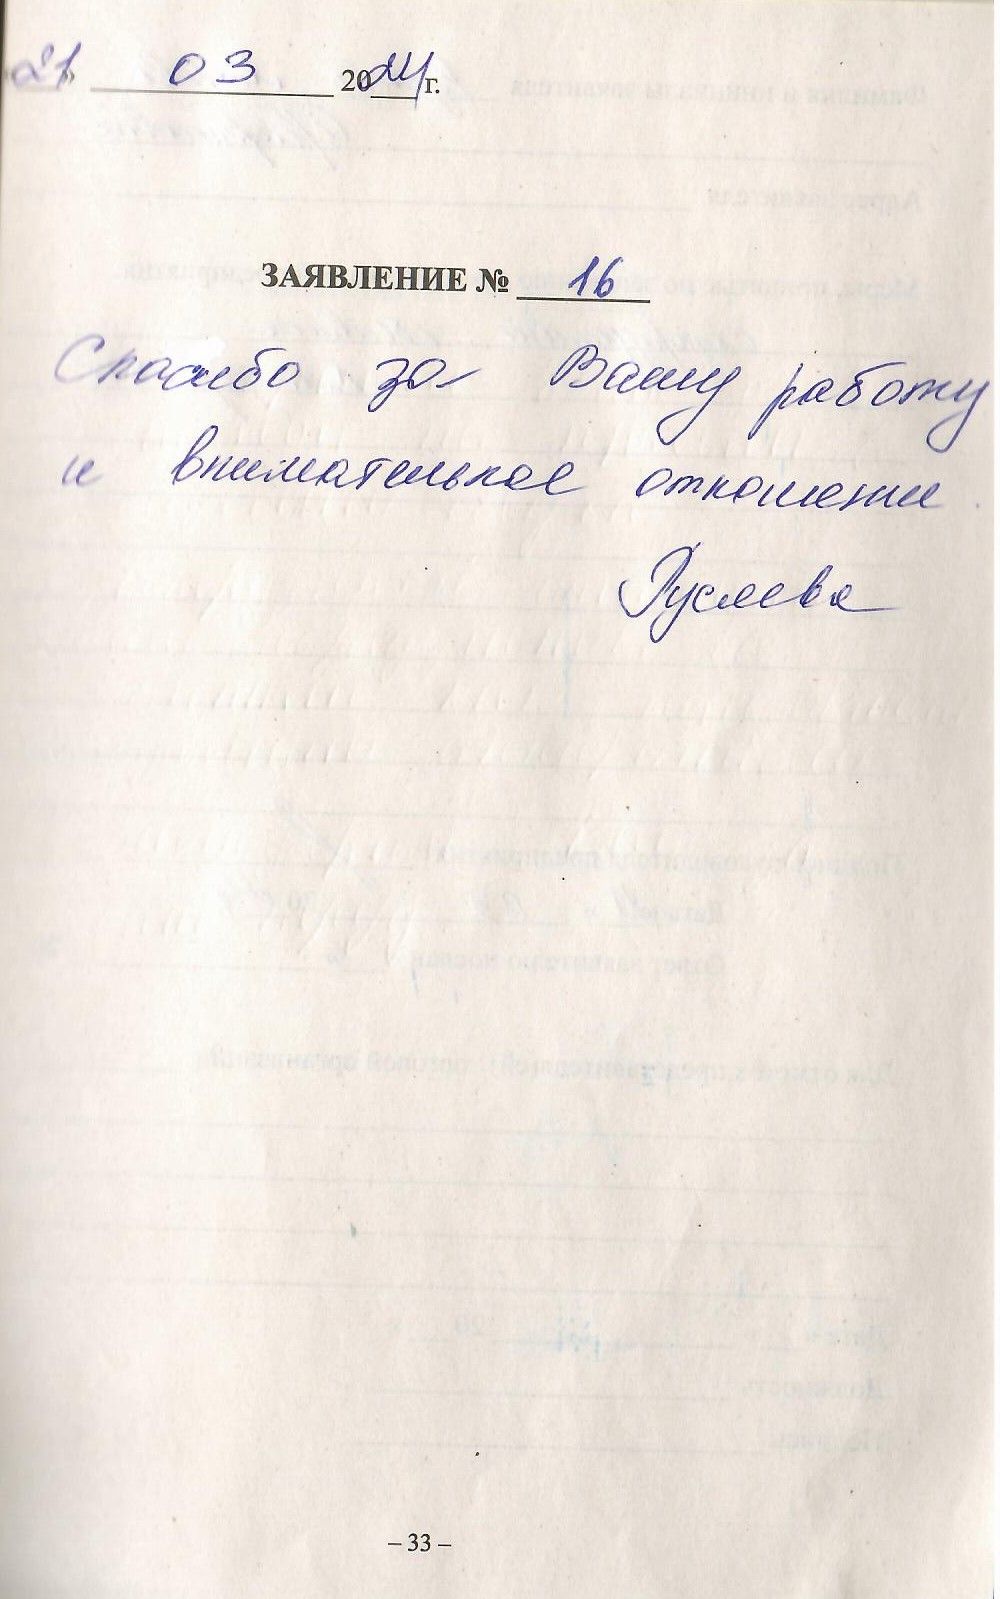 «21» 03 2024 г.
ЗАЯВЛЕНИЕ № 16
Спасибо за Вашу работу
и внимательное отношение.
Руслева
– 33 –